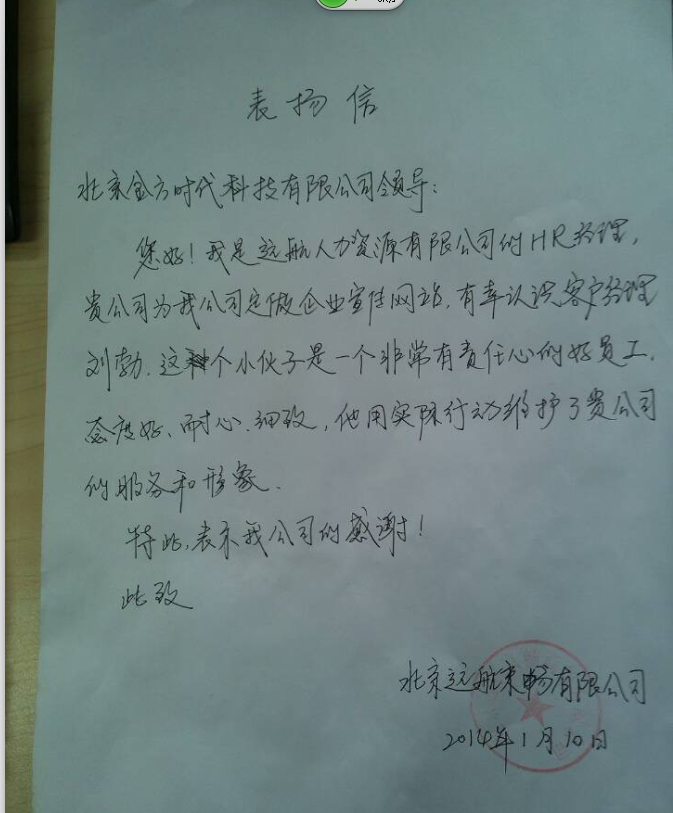 表扬信
北京金方时代科技有限公司领导：
您好！我是远航人力资源有限公司的HR经理，
贵公司为我公司定做企业宣传网站，有幸认识客户经理
刘勃．这个小伙子是一个非常有责任心的好员工．
态度好、耐心、细致，他用实际行动维护了贵公司
的服务和形象．
特此，表示我公司的感谢！
此致
北京远航来畅有限公司
2014年1月10日